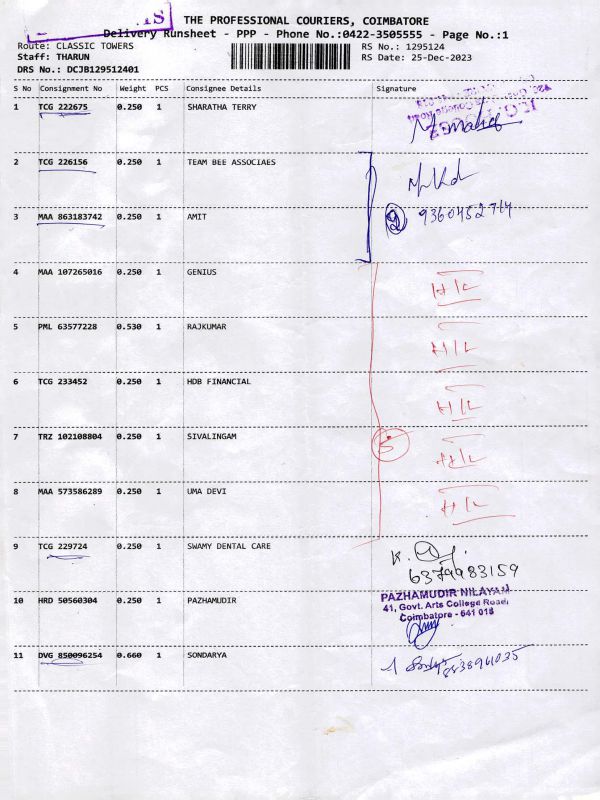 THE PROFESSIONAL COURIERS, COIMBATORE
Delivery Runsheet - PPP - Phone No.:0422-3505555 - Page No.:1
Route: CLASSIC TOWERS
RS No.: 1295124
Staff: THARUN
RS Date: 25-Dec-2023
DRS No.: DCJB129512401
S No Consignment No Weight PCS Consignee Details Signature
1 TCG 222675 0.250 1 SHARATHA TERRY
2 TCG 226156 0.250 1 TEAM BEE ASSOCIAES
3 MAA 863183742 0.250 1 AMIT
2 9360452714
4 MAA 107265016 0.250 1 GENIUS H/L
5 PML 63577228 0.530 1 RAJKUMAR H/L
6 TCG 233452 0.250 1 HDB FINANCIAL H/L
7 TRZ 102108804 0.250 1 SIVALINGAM 5 H/L
8 MAA 573586289 0.250 1 UMA DEVI H/L
9 TCG 229724 0.250 1 SWAMY DENTAL CARE
6379983159
10 HRD 50560304 0.250 1 PAZHAMUDIR
PAZHAMUDIR NILAYAM
41, Govt. Arts College Road,
Coimbatore - 641 018
11 DVG 850096254 0.660 1 SONDARYA